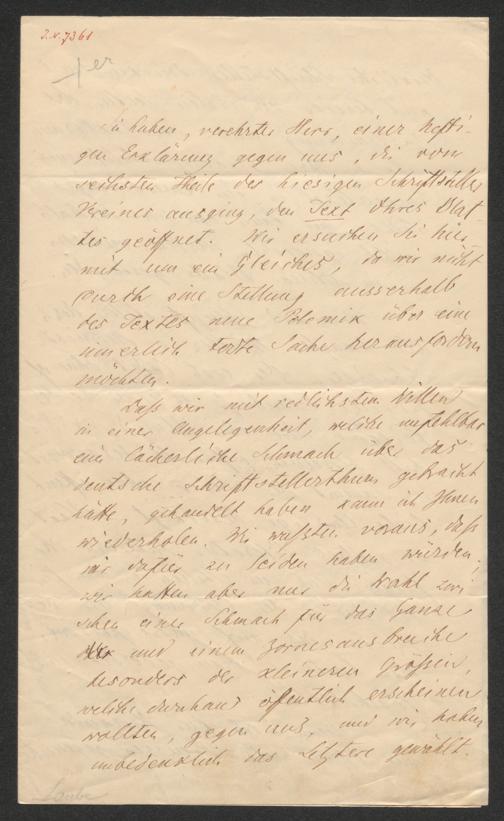 J.N. 7361
Sie haben, verehrter Herr, einer hefti-
gen Erklärung gegen uns, die vom
sechsten Theile des hiesigen Schriftsteller
Vereines ausging, den Text Ihres Blat-
tes geöffnet. Wir ersuchen Sie hie-
mit um ein Gleiches, da wir nicht
durch eine Stellung ausserhalb
des Textes neue Polemik über eine
innerlich todte Sache herausfordern
möchten.
Daß wir mit redlichstem Willen
in einer Angelegenheit, welche unfehlbar
eine lächerliche Schmach über das
deutsche Schriftstellerthum gebracht
hätte, gehandelt haben kann ich Ihnen
wiederholen. Wir wußten voraus, daß
wir dafür zu leiden haben würden;
wir hatten aber nur die Wahl zwi
schen einer Schmach für das Ganze
und einem Zornesausbruche
besonders der kleineren Größen,
welche durchaus öffentlich erscheinen
wollten, gegen uns, und wir haben
unbedenklich das Letztere gewählt.
Laube